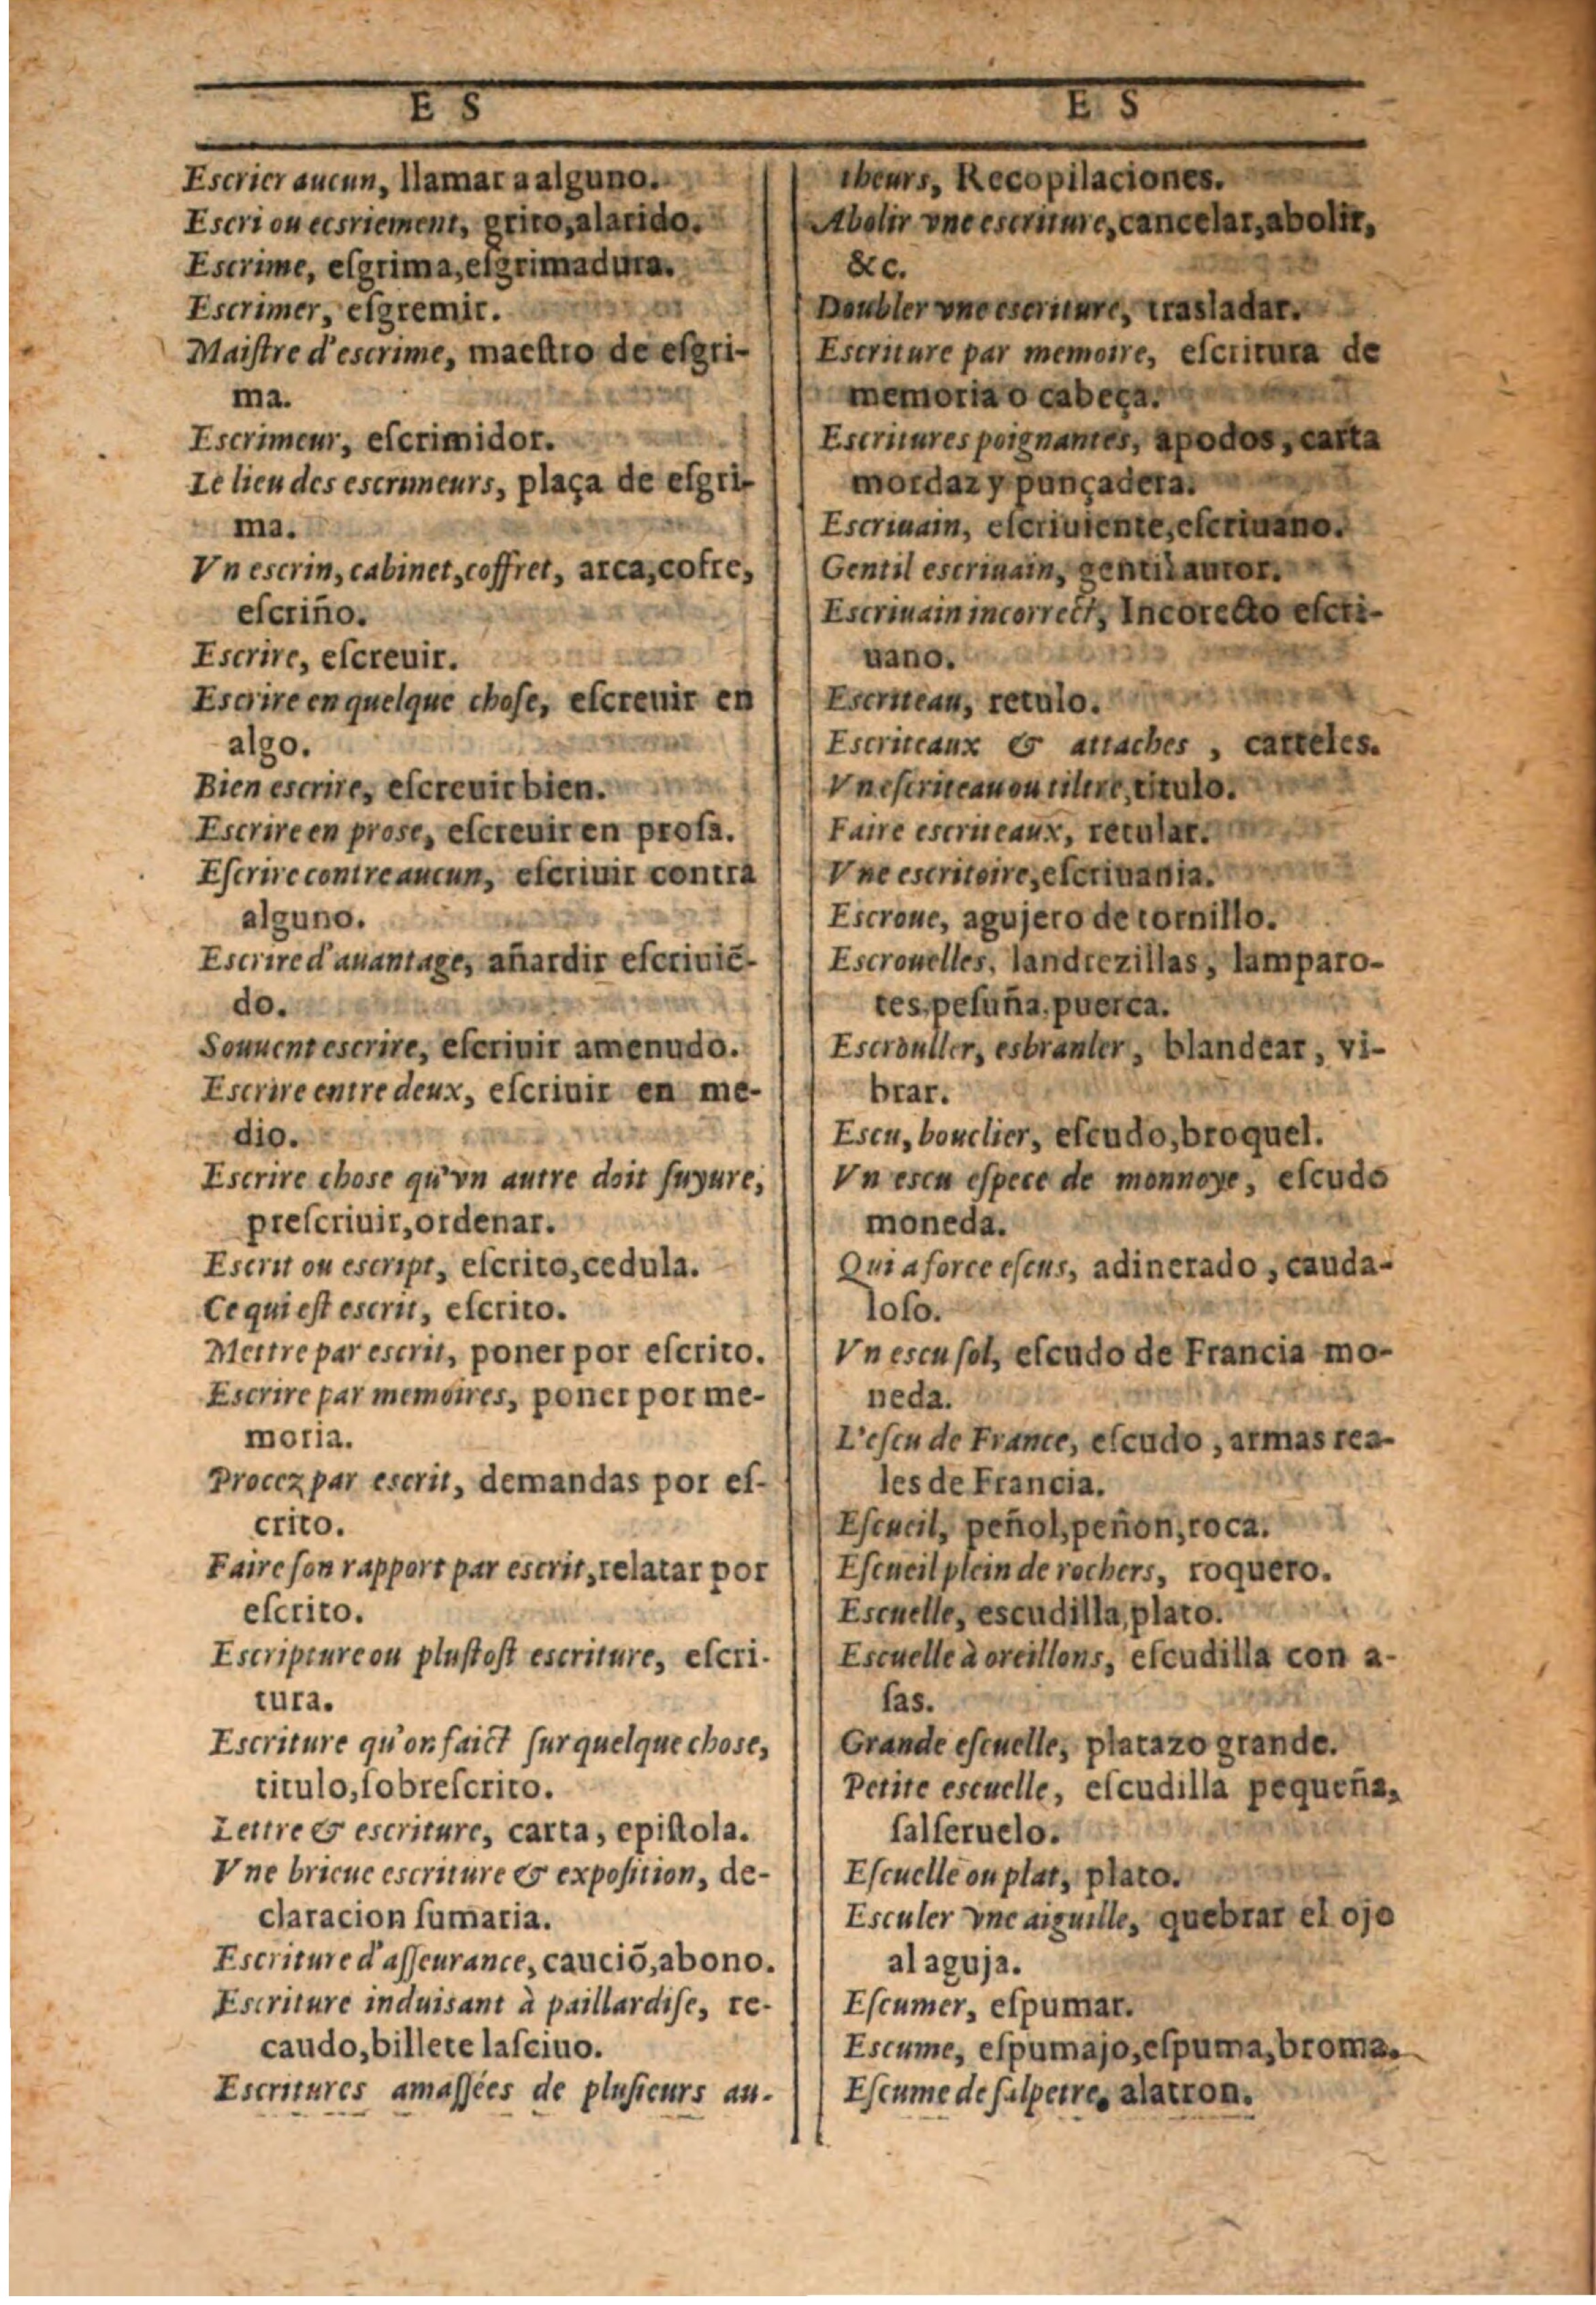 E S
Escrier aucun, llamar a alguno.
Escri ou ecsriement, grito, alarido.
Escrime, eſgrima, eſgrimadura.
Escrimer, eſgremir.
Maiſtre d'escrime, maeſtro de eſgri-
ma.
Escrimeur, eſcrimidor.
Le lieu des escrimeurs, plaça de eſgri-
ma.
Vn escrin, cabinet, coffret, arca, cofre,
eſcriño.
Escrire, eſcreuir.
Escrire en quelque choſe, eſcreuir en
algo.
Bien escrire, eſcreuir bien.
Escrire en prose, eſcreuir en proſa.
Eſcrire contre aucun, eſcriuir contra
alguno.
Escrire d'auantage, añardir eſcriuiē-
do.
Souuent escrire, eſcriuir amenudo.
Escrire entre deux, eſcriuir en me-
dio.
Escrire chose qu'vn autre doit ſuyure,
preſcriuir, ordenar.
Escrit ou escript, eſcrito, cedula.
Ce qui eſt escrit, eſcrito.
Mettre par escrit, poner por eſcrito.
Escrire par memoires, poner por me-
moria.
Procez par escrit, demandas por eſ-
crito.
Faire ſon rapport par escrit, relatar por
eſcrito.
Escripture ou pluſtoſt escriture, eſcri-
tura.
Escriture qu'on faict ſur quelque chose,
titulo, ſobreſcrito.
Lettre & escriture, carta, epiſtola.
Vne brieue escriture & expoſition, de-
claracion ſumaria.
Escriture d'aſſeurance, cauciō, abono.
Escriture induisant à paillardiſe, re-
caudo, billete laſciuo.
Escritures amaſſées de pluſieurs au-
E S
theurs, Recopilaciones.
Abolir vne escriture, cancelar, abolir,
&c.
Doubler vne escriture, trasladar.
Escriture par memoire, eſcritura de
memoria o cabeça.
Escritures poignantes, apodos, carta
mordaz y punçadera.
Escriuain, eſcriuiente, eſcriuano.
Gentil escriuain, gentil autor.
Escriuain incorrect, Incorecto eſcri-
uano.
Escriteau, retulo.
Escriteaux & attaches, carteles.
Vn eſcriteau ou tiltre, titulo.
Faire escriteaux, retular.
Vne escritoire, eſcriuania.
Escroue, agujero de tornillo.
Escrouelles, landrezillas, lamparo-
tes, peſuña, puerca.
Escrouller, esbranler, blandear, vi-
brar.
Escu, bouclier, eſcudo, broquel.
Vn escu eſpece de monnoye, eſcudo
moneda.
Qui a force eſcus, adinerado, cauda-
loſo.
Vn escu ſol, eſcudo de Francia mo-
neda.
L'eſcu de France, eſcudo, armas rea-
les de Francia.
Eſcueil, peñol, peñon, roca.
Eſcueil plein de rochers, roquero.
Escuelle, escudilla, plato.
Escuelle à oreillons, eſcudilla con a-
ſas.
Grande eſcuelle, platazo grande.
Petite escuelle, eſcudilla pequeña,
ſalſeruelo.
Eſcuelle ou plat, plato.
Esculer vne aiguille, quebrar el ojo
al aguja.
Eſcumer, eſpumar.
Escume, eſpumajo, eſpuma, broma.
Eſcume de ſalpetre, alatron.